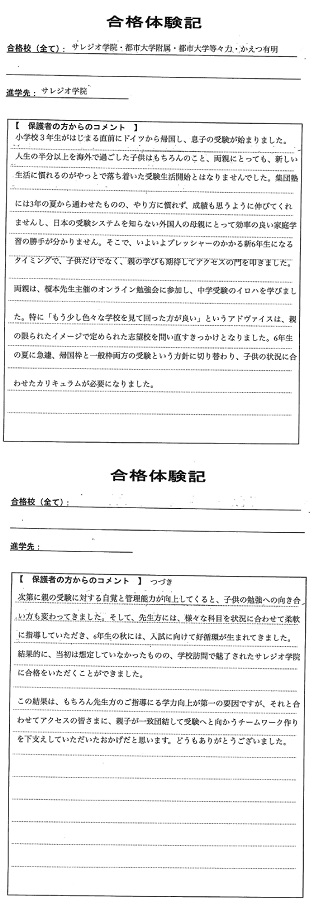 合格体験記
合格校（全て）： サレジオ学院・都市大学附属・都市大学等々力・かえつ有明
進学先： サレジオ学院
【 保護者の方からのコメント 】
小学校３年生がはじまる直前にドイツから帰国し、息子の受験が始まりました。
人生の半分以上を海外で過ごした子供はもちろんのこと、両親にとっても、新しい
生活に慣れるのがやっとで落ち着いた受験生活開始とはなりませんでした。集団塾
には3年の夏から通わせたものの、やり方に慣れず、成績も思うように伸びてくれ
ませんし、日本の受験システムを知らない外国人の母親にとって効率の良い家庭学
習の勝手が分かりません。そこで、いよいよプレッシャーのかかる新6年生になる
タイミングで、子供だけでなく、親の学びも期待してアクセスの門を叩きました。
両親は、榎本先生主催のオンライン勉強会に参加し、中学受験のイロハを学びまし
た。特に「もう少し色々な学校を見て回った方が良い」というアドヴァイスは、親
の限られたイメージで定められた志望校を問い直すきっかけとなりました。6年生
の夏に急遽、帰国枠と一般枠両方の受験という方針に切り替わり、子供の状況に合
わせたカリキュラムが必要になりました。
合格体験記
合格校（全て）：
進学先：
【 保護者の方からのコメント 】 つづき
次第に親の受験に対する自覚と管理能力が向上してくると、子供の勉強への向き合
い方も変わってきました。そして、先生方には、様々な科目を状況に合わせて柔軟
に指導していただき、6年生の秋には、入試に向けて好循環が生まれてきました。
結果的に、当初は想定していなかったものの、学校訪問で魅了されたサレジオ学院
に合格をいただくことができました。
この結果は、もちろん先生方のご指導にる学力向上が第一の要因ですが、それと合
わせてアクセスの皆さまに、親子が一致団結して受験へと向かうチームワーク作り
を下支えしていただいたおかげだと思います。どうもありがとうございました。